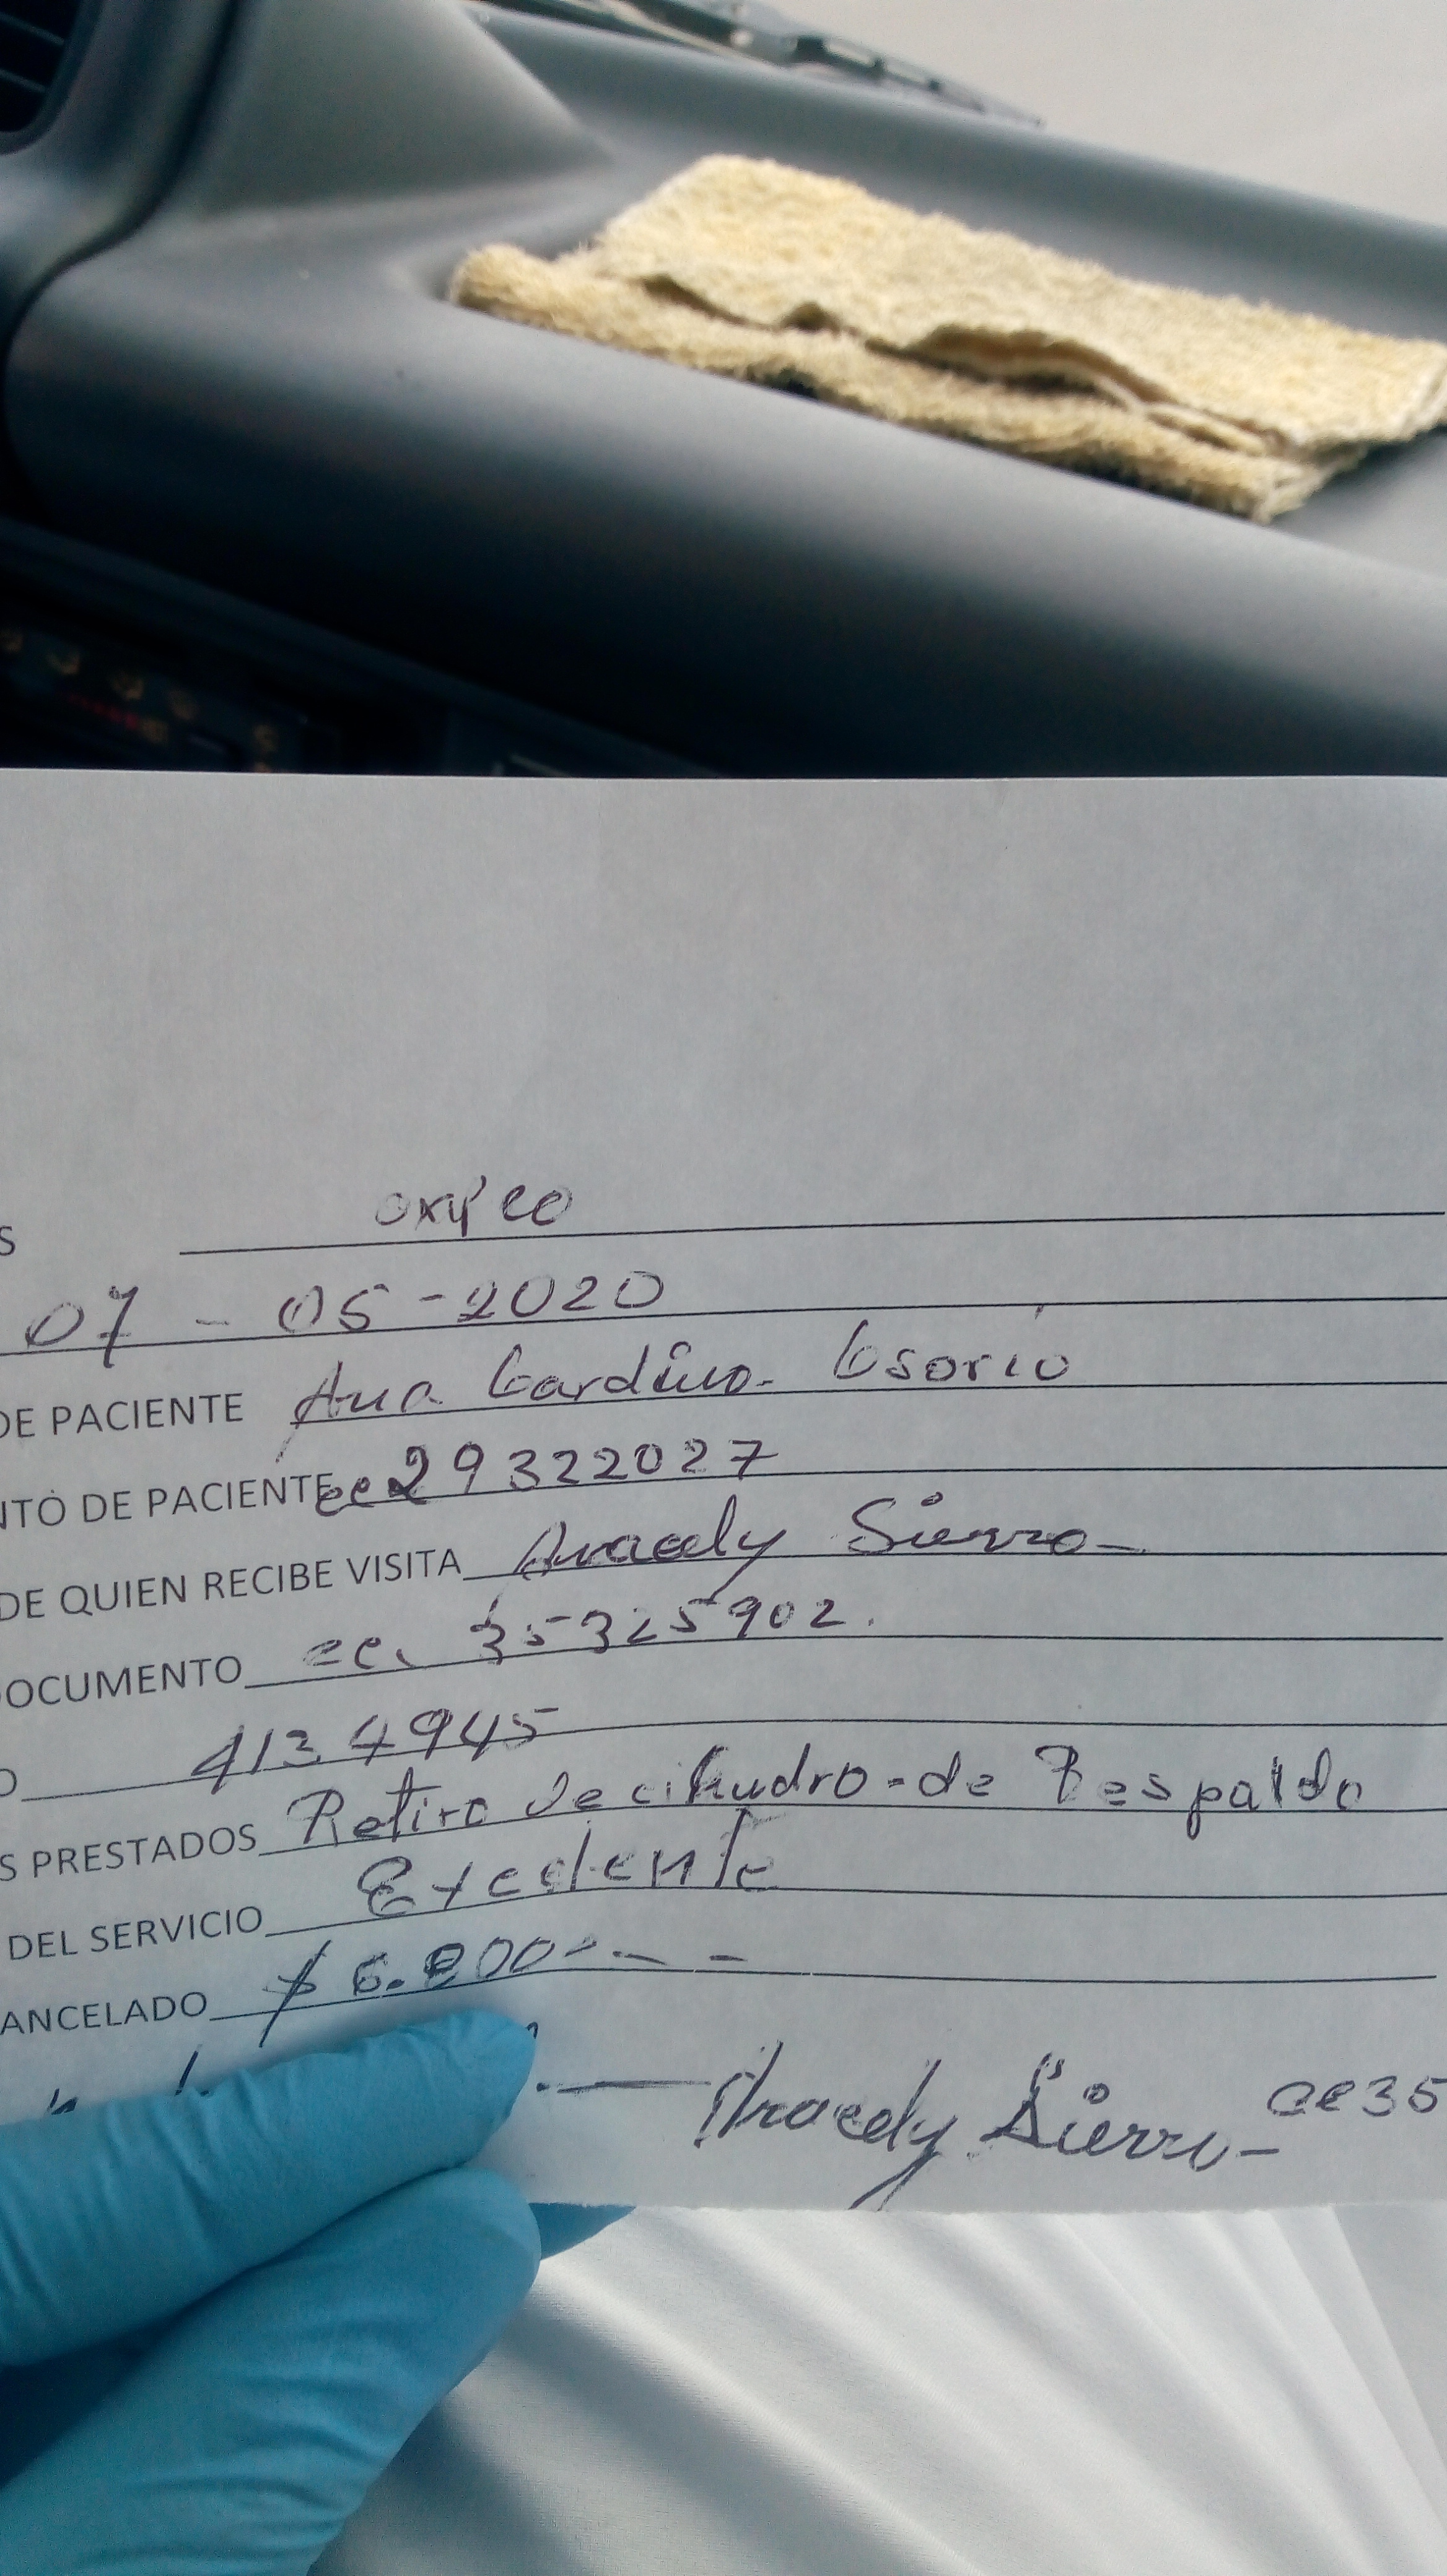 S oxy'co
07 - 05-2020
DE PACIENTE Ana Osorio
NTO DE PACIENTE cc 29322027
DE QUIEN RECIBE VISITA Aracely Sierra
DOCUMENTO cc. 35325902.
O 4134945
S PRESTADOS Retiro de cilindro-de Respaldo
DEL SERVICIO Excelente
ANCELADO $ 6.800
Aracely Sierra- cc 35